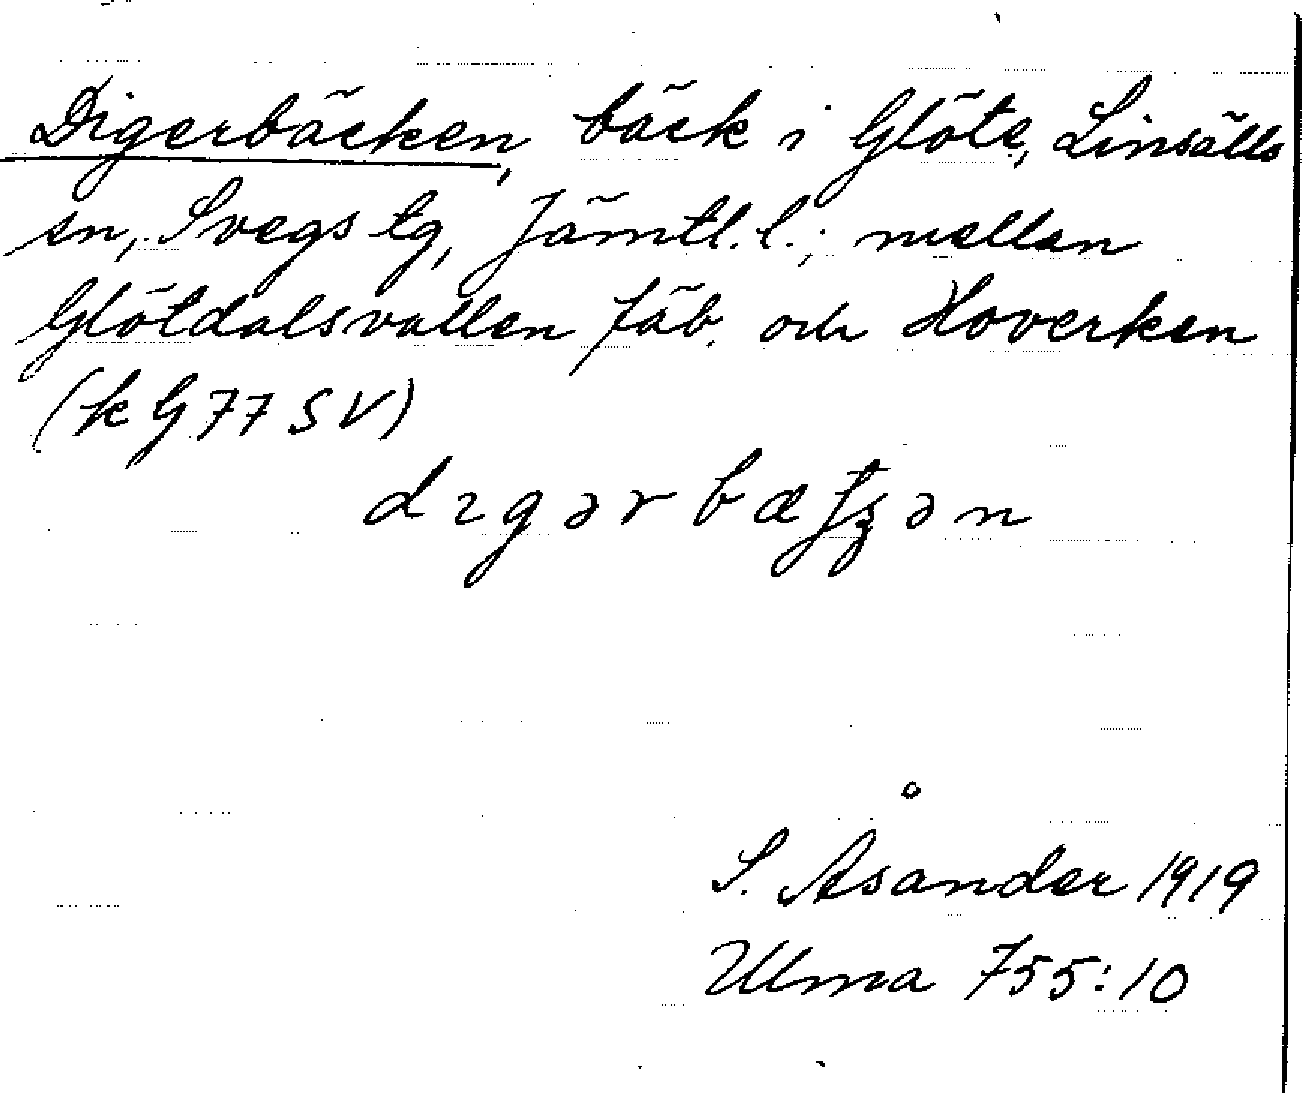 Digerbäcken, bäck i Glöte, Linsälls
sn, Svegs tg, Jämtl. l.; mellan
Glötdalsvallen fäb. och Hoverken
(k G 77 SV)
S. Åsander 1919
Ulma 755:10